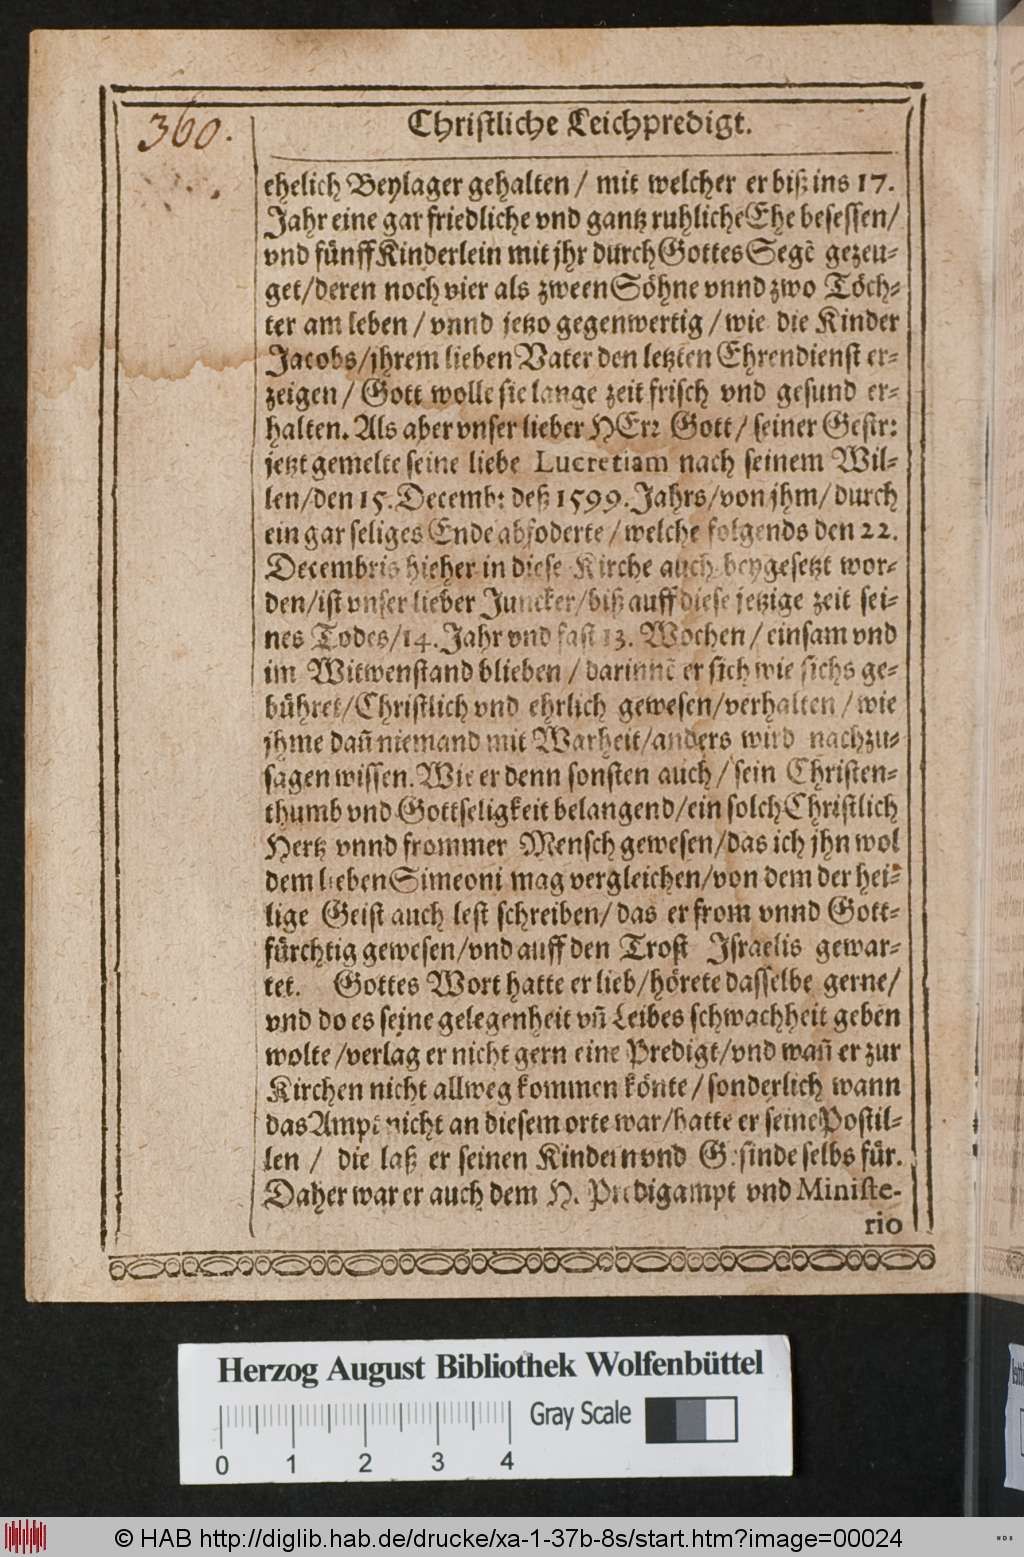 360.
Christliche Leichpredigt.
ehelich Beylager gehalten / mit welcher er biß ins 17.
Jahr eine gar friedliche vnd gantz ruhliche Ehe besessen/
vnd fünff Kinderlein mit jhr durch Gottes Segẽ gezeu-
get/deren noch vier als zween Söhne vnnd zwo Töch-
ter am leben / vnnd jetzo gegenwertig / wie die Kinder
Jacobs/jhrem lieben Vater den letzten Ehrendienst er-
zeigen / Gott wolle sie lange zeit frisch vnd gesund er-
halten. Als aber vnser lieber HErr Gott / seiner Gestr:
jetzt gemelte seine liebe Lucretiam nach seinem Wil-
len/den 15. Decemb: deß 1599. Jahrs/von jhm/ durch
ein gar seliges Ende abfoderte / welche folgends den 22.
Decembris hieher in diese Kirche auch beygesetzt wor-
den/ist vnser lieber Juncker/biß auff diese jetzige zeit sei-
nes Todes/14. Jahr vnd fast 13. Wochen / einsam vnd
im Witwenstand blieben / darinnẽ er sich wie sichs ge-
bühret/Christlich vnd ehrlich gewesen/verhalten / wie
jhme dañ niemand mit Warheit/anders wird nachzu-
sagen wissen. Wie er denn sonsten auch / sein Christen-
thumb vnd Gottseligkeit belangend/ein solch Christlich
Hertz vnnd frommer Mensch gewesen/das ich jhn wol
dem lieben Simeoni mag vergleichen/von dem der hei-
lige Geist auch lest schreiben/ das er from vnnd Gott-
fürchtig gewesen/vnd auff den Trost Israelis gewar-
tet. Gottes Wort hatte er lieb/hörete dasselbe gerne/
vnd do es seine gelegenheit vñ Leibes schwachheit geben
wolte /verlag er nicht gern eine Predigt/vnd wañ er zur
Kirchen nicht allweg kommen könte / sonderlich wann
das Ampt nicht an diesem orte war/hatte er seine Postil-
len / die laß er seinen Kindern vnd Gesinde selbs für.
Daher war er auch dem H. Predigampt vnd Ministe-
rio
Herzog August Bibliothek Wolfenbüttel
Gray Scale
0 1 2 3 4
© HAB http://diglib.hab.de/drucke/xa-1-37b-8s/start.htm?image=00024